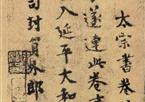 太宗書卷
遂連此卷
入延平大和
司封員外郎